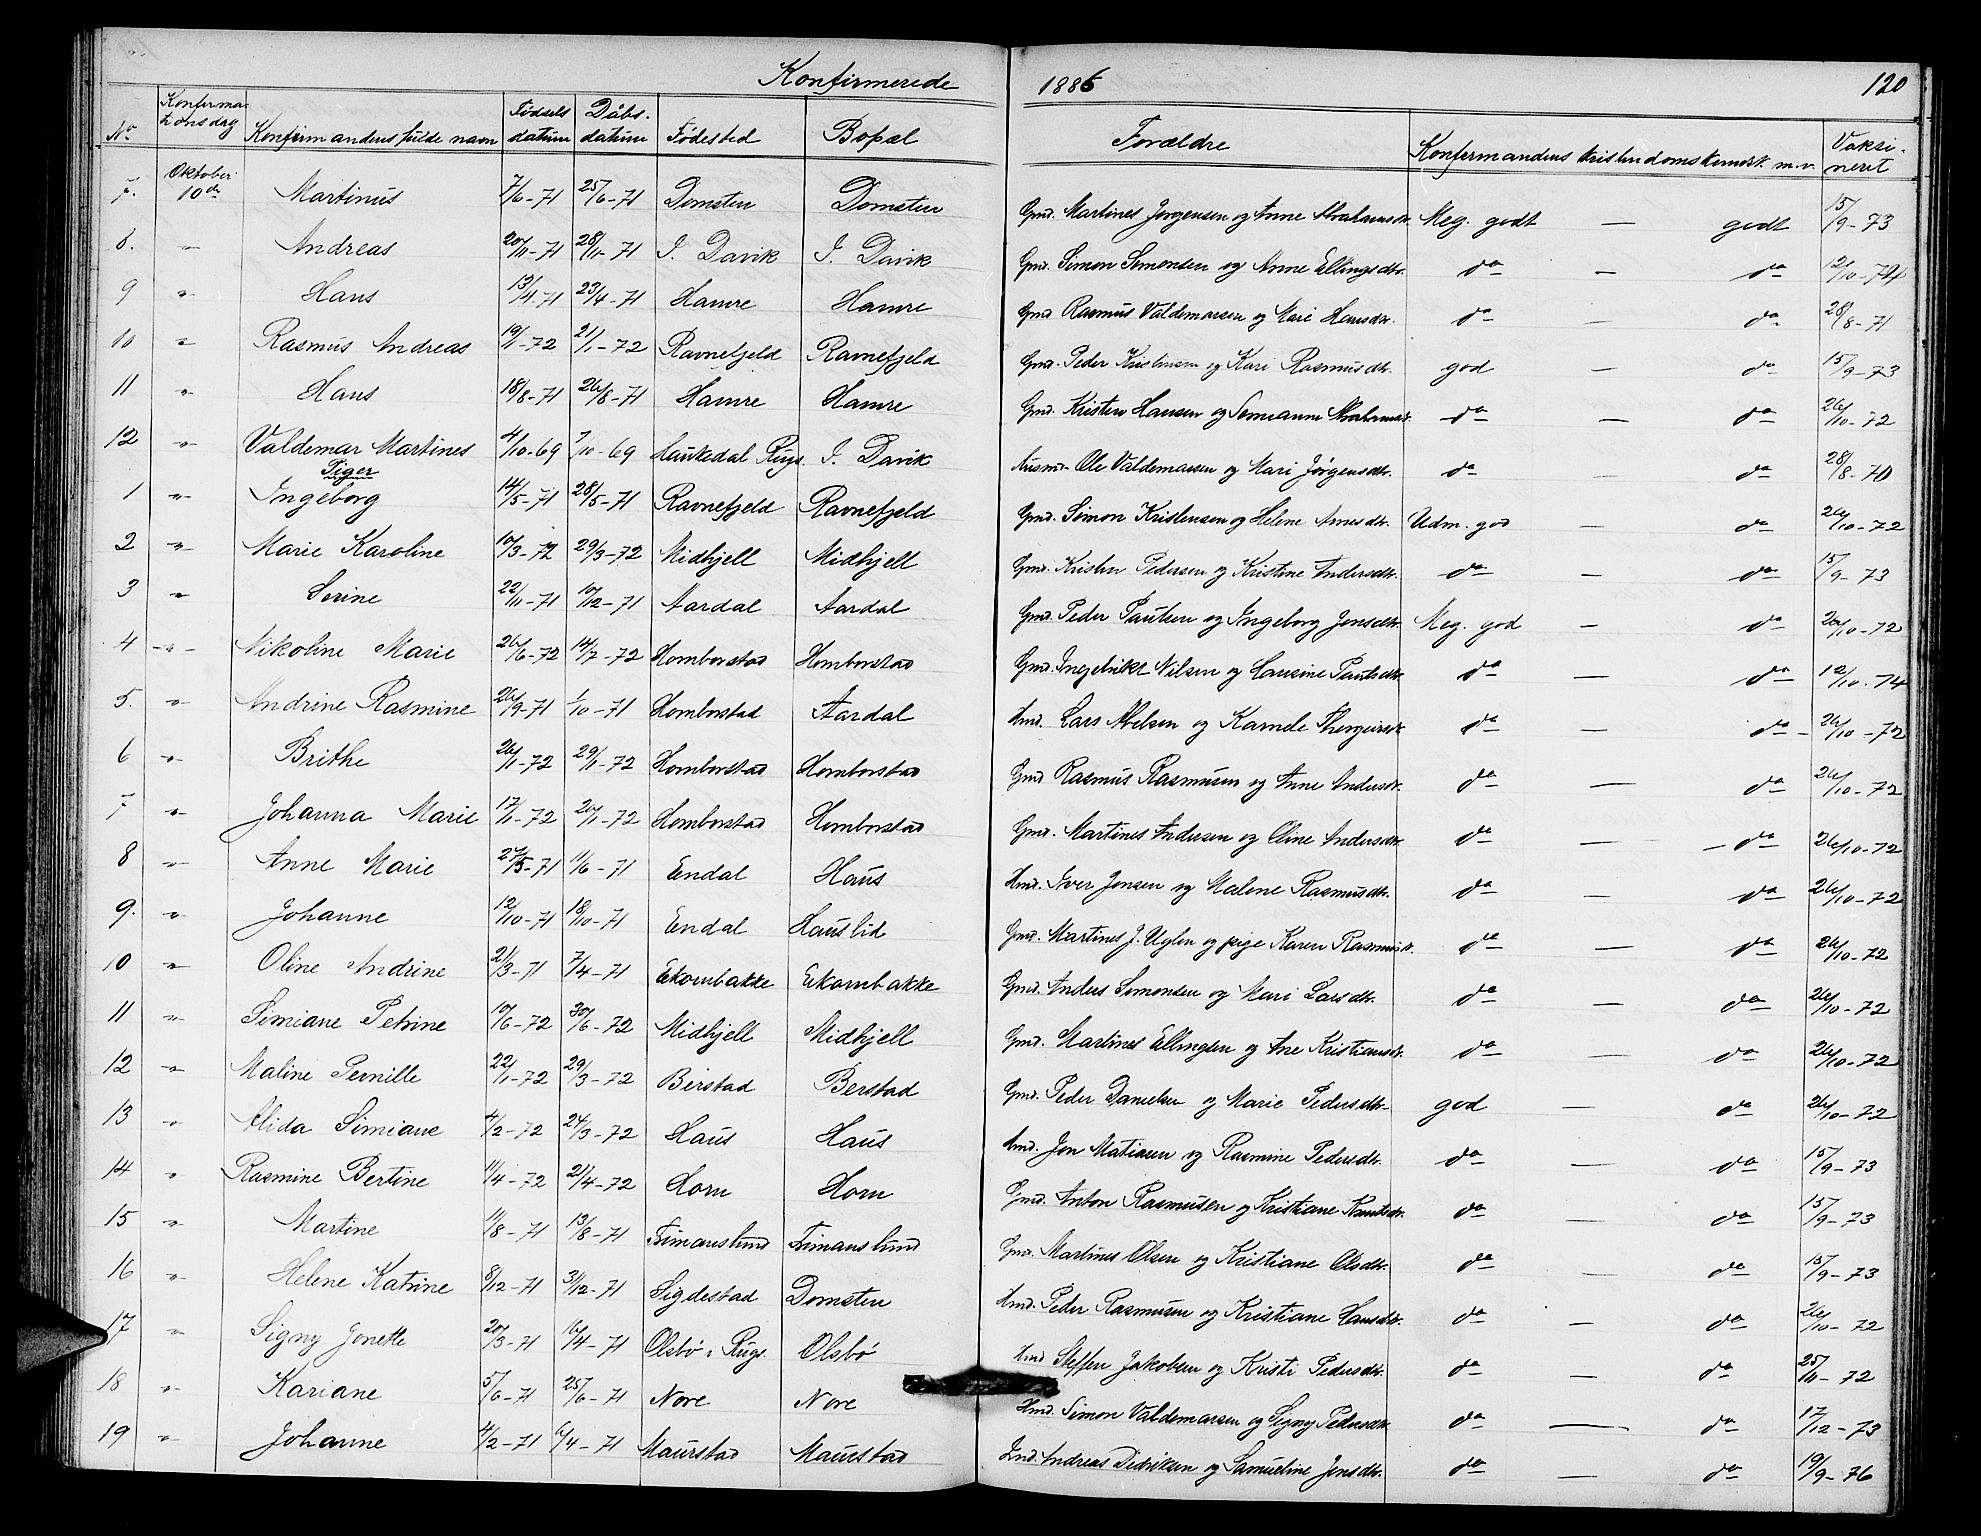 Konfirmerede 1886 120
No Konfirmationsdag Konfirmandens fulde navn Fødselsdatum Dåbsdatum Fødested Bopæl Forældre Konfirmandens kristendomskunnsk. m.v. Vaksineret
7. Oktober 10de Martinus 7/6-71 25/6-71 Domsten Domsten Gmd. Martines Jørgensen og Anne Abrahamsdr. Meg. godt — godt 15/9-73
8. " Andreas 20/11-71 28/11-71 I. Davik I. Davik Gmd. Simon Simonsen og Anne Ellingsdtr. do — do 12/10-74
9 " Hans 13/4-71 23/4-71 Hamre Hamre Gmd. Rasmus Valdemarsen og Mari Hansdtr. do — do 28/8-71
10 " Rasmus Andreas 19/1-72 21/1-72 Ravnefjeld Ravnefjeld Gmd. Peder Kristensen og Kari Rasmusdtr. god — do 15/9-73
11 " Hans 18/8-71 26/8-71 Hamre Hamre Gmd. Kristen Hansen og Simianna do — do 26/10-72
12 " Valdemar Martines 4/10-69 7/10-69 Haukedal Rugs. I. Davik Husmd. Ole Valdemarsen og Mari Jørgensdtr. do — do 28/8-70
Piger
1 " Ingeborg 14/5-71 28/5-71 Ravnefjeld Ravnefjeld Gmd. Simon Kristensen og Helene Arnesdtr. Udm. god — do 26/10-72
2 " Marie Karoline 10/3-72 29/3-72 Midhjell Midhjell Gmd. Kristen Pedersen og Kristine Andersdtr. do — do 15/9-73
3 " Serine 22/11-71 10/12-71 Aardal Aardal Gmd. Peder Paulsen og Ingeborg Jonsdtr. Meg. god — do 26/10-72
4 " Nikoline Marie 26/6-72 14/7-72 Homborstad Homborstad Gmd. Ingebrikt Nilsen og Laurine Paulsdtr. do — do 12/10-74
5. " Andrine Rasmine 26/9-71 1/10-71 Homborstad Aardal Hmd. Lars Abelsen og Karnele do — do - 26/10-72
6 " Brithe 26/1-72 29/1-72 Homborstad Homborstad Gmd Rasmus Rasmusen og Anne Andersdtr. do — do 26/10-72
7 " Johanna Marie 17/1-72 20/1-72 Homborstad Homborstad Gmd. Martines Andersen og Oline Andersdtr. do — do 26/10-72
8 " Anne Marie 27/5-71 11/6-71 Endal Haus Hmd. Iver Jensen og Malene Rasmusdtr. do — do 26/10-72
9. " Johanne 12/10-71 18/10-71 Endal Hauslid Gmd. Martines J. Uglen og pige Karen Rasmusdr. do — do 26/10-72
10 " Oline Andrine 21/3-71 7/4-71 Ekornbakke Ekornbakke Gmd. Anders Simonsen og Mari Larsdtr. do — do 26/10-72
11 " Simiane Petrine 10/6-72 30/6-72 Midhjell Midhjell Gmd. Martines Ellingsen og Ane Kristiansdr. do — do 26/10-72
12 " Maline Pernille 22/1-72 29/3-72 Berstad Berstad Gmd. Peder Danielsen og Marie Pedersdtr. god — do 26/10-72
13 " Alida Simiane 4/2-72 24/3-72 Haus Haus Hmd. Jon Matiasen og Rasmine Pedersdtr. do — do 15/9-73
14 " Rasmine Bertine 11/4-72 21/4-72 Horn Horn Gmd. Anton Rasmusen og Kristiane Knutsdr. do — do 15/9-73
15 " Martine 11/8-71 13/8-71 Frimanslund Frimanslund Gmd. Martines Olsen og Kristiane Olsdtr. do — do 15/9-73
16 " Helene Katrine 8/12-71 31/12-71 Sigdestad Domsten Hmd. Peder Rasmusen og Kristiane Hansdtr. do — do 26/10-72
17 " Signy Jonette 20/3-71 16/4-71 Olsbø i Rugs. Olsbø Hmd Steffen Jakobsen og Kristi Pedersdtr. do — do 25/11-72
18 " Kariane 5/6-71 25/6-71 Nore Nore Hmd. Simon Valdemarsen og Signy Pedersdtr do — do 17/12-73
19 " Johanne 4/2-71 6/4-71 Maurstad Maurstad Ind. Andreas Didriksen og Samueline Jensdtr. do — do 19/9-76